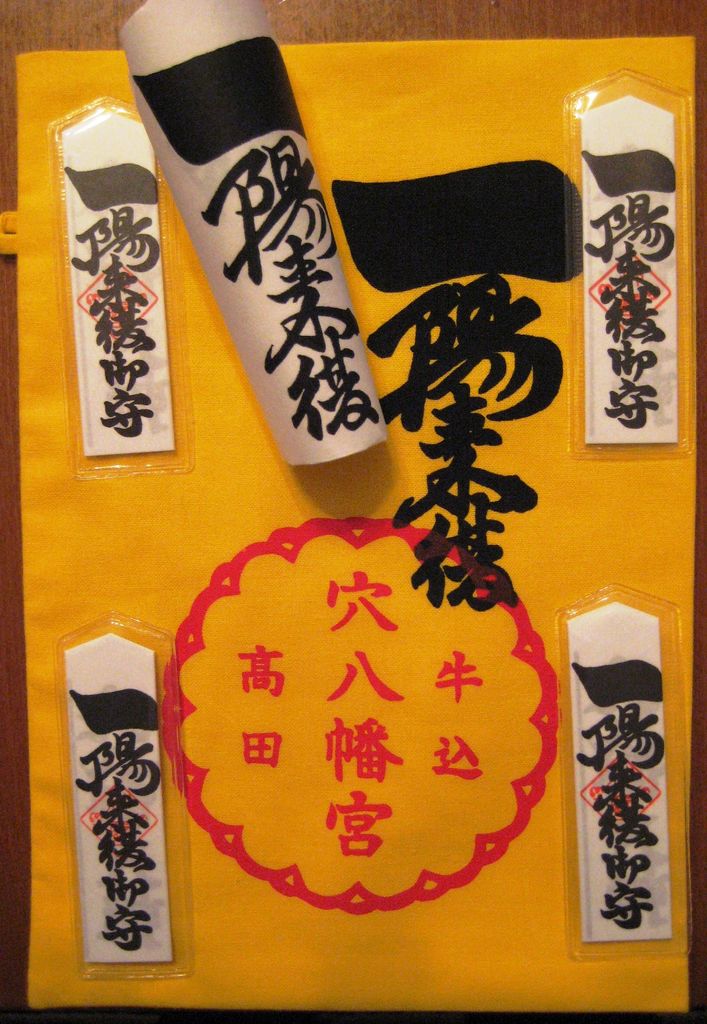 一陽来復
一陽来復
一陽来復御守
一陽来復御守
一陽来復御守
一陽来復御守
牛込
穴八幡宮
高田